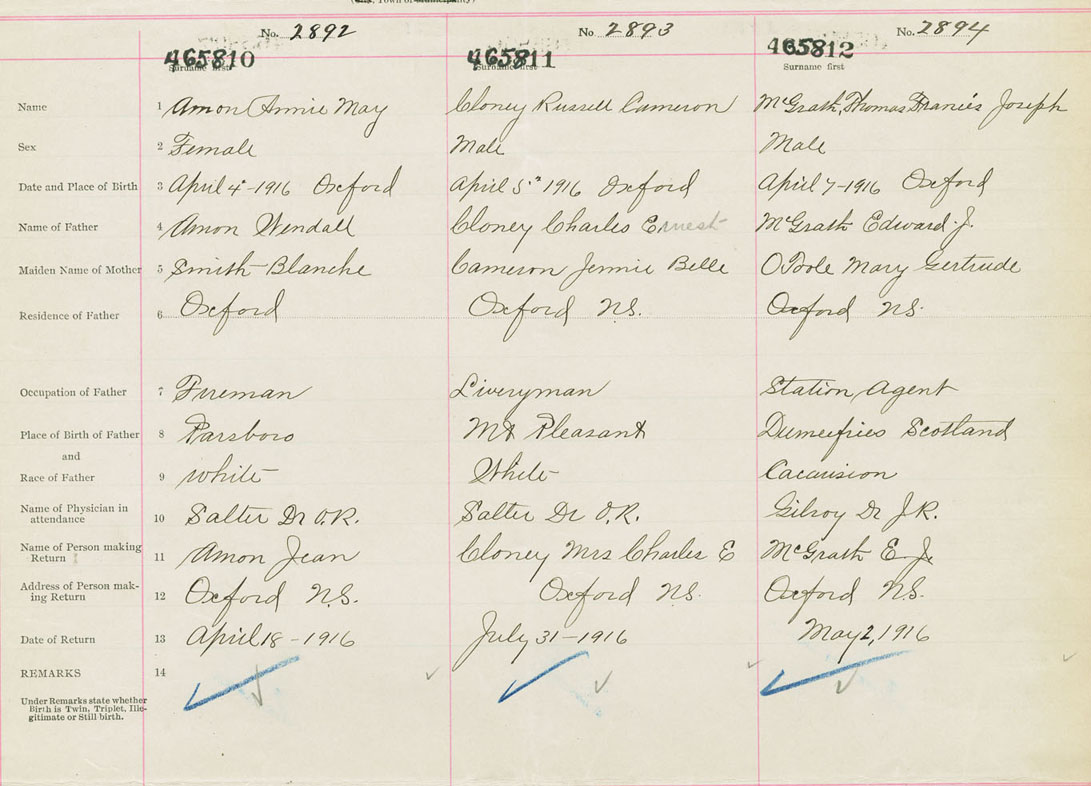 (City, Town or Municipality)
No. 2892 No 2893 No. 2894
465810 465811 465812
Surname first Surname first Surname first
Name 1 Amon Annie May Cloney Russell Cameron McGrath, Thomas Francis Joseph
Sex 2 Female Male Male
Date and Place of Birth 3 April 4-1916 Oxford April 5th 1916 Oxford April 7-1916 Oxford
Name of Father 4 Amon Wendall Cloney Charles Ernest McGrath Edward J.
Maiden Name of Mother 5 Smith Blanche Cameron Jennie Belle O'Toole Mary Gertrude
Residence of Father 6 Oxford Oxford N.S. Oxford N.S.
Occupation of Father 7 Fireman Liveryman Station Agent
Place of Birth of Father 8 Parsboro Mt Pleasant Dumeefries Scotland
and
Race of Father 9 white White Cacausion
Name of Physician in
attendance 10 Salter Dr O.R. Salter Dr O.R. Gilroy Dr J.R.
Name of Person making
Return 11 Amon Jean Cloney Mrs Charles E McGrath E. J.
Address of Person mak-
ing Return 12 Oxford N.S. Oxford N.S. Oxford N.S.
Date of Return 13 April 18-1916 July 31-1916 May 2, 1916
REMARKS 14
Under Remarks state whether
Birth is Twin, Triplet, Ille-
gitimate or Still birth.